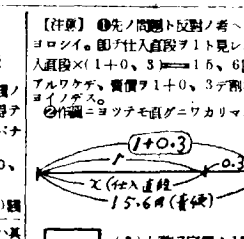 【注意】 ❶先ノ問題ト反對ノ考ヘ
ヨロシイ。即チ仕入直段ヲ1ト見レ
入直段×(1+0、3)=15、6
アルワケデ、賣價ヲ1+0、3デ割
ヨイノデス。
❷作圖ニヨツテモ直グニワカリマ
1+0.3
1
0.3
x(仕入直段)
15.6円(賣價)